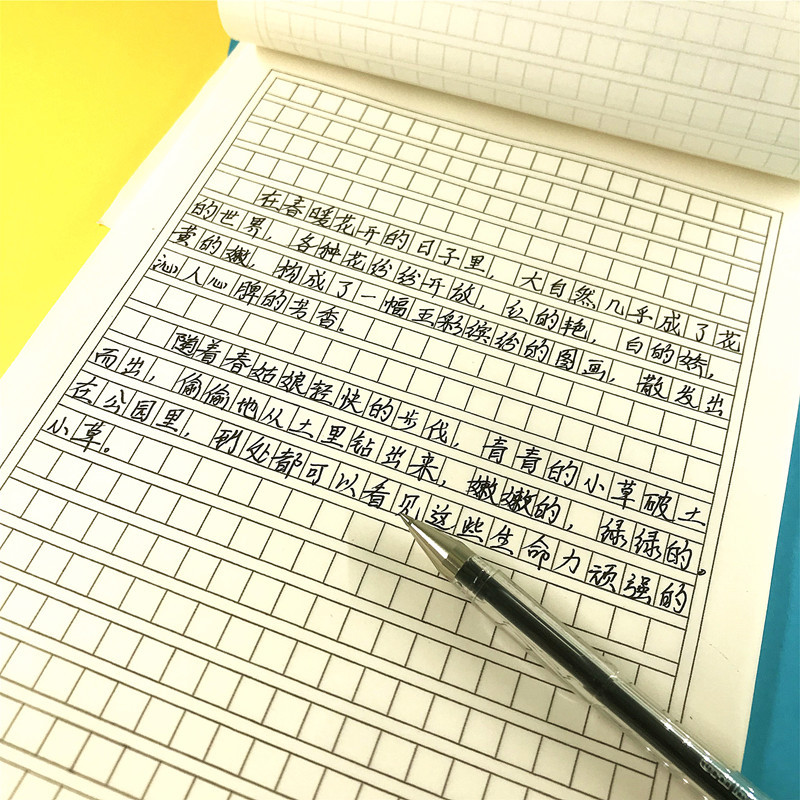 在春暖花开的日子里，大自然几乎成了花
的世界，各种花纷纷开放，红的艳，白的娇，
黄的嫩，构成了一幅五彩缤纷的图画，散发出
沁人心脾的芳香。
随着春姑娘轻快的步伐，青青的小草破土
而出，偷偷地从土里钻出来，嫩嫩的，绿绿的。
在公园里，到处都可以看见这些生命力顽强的
小草。